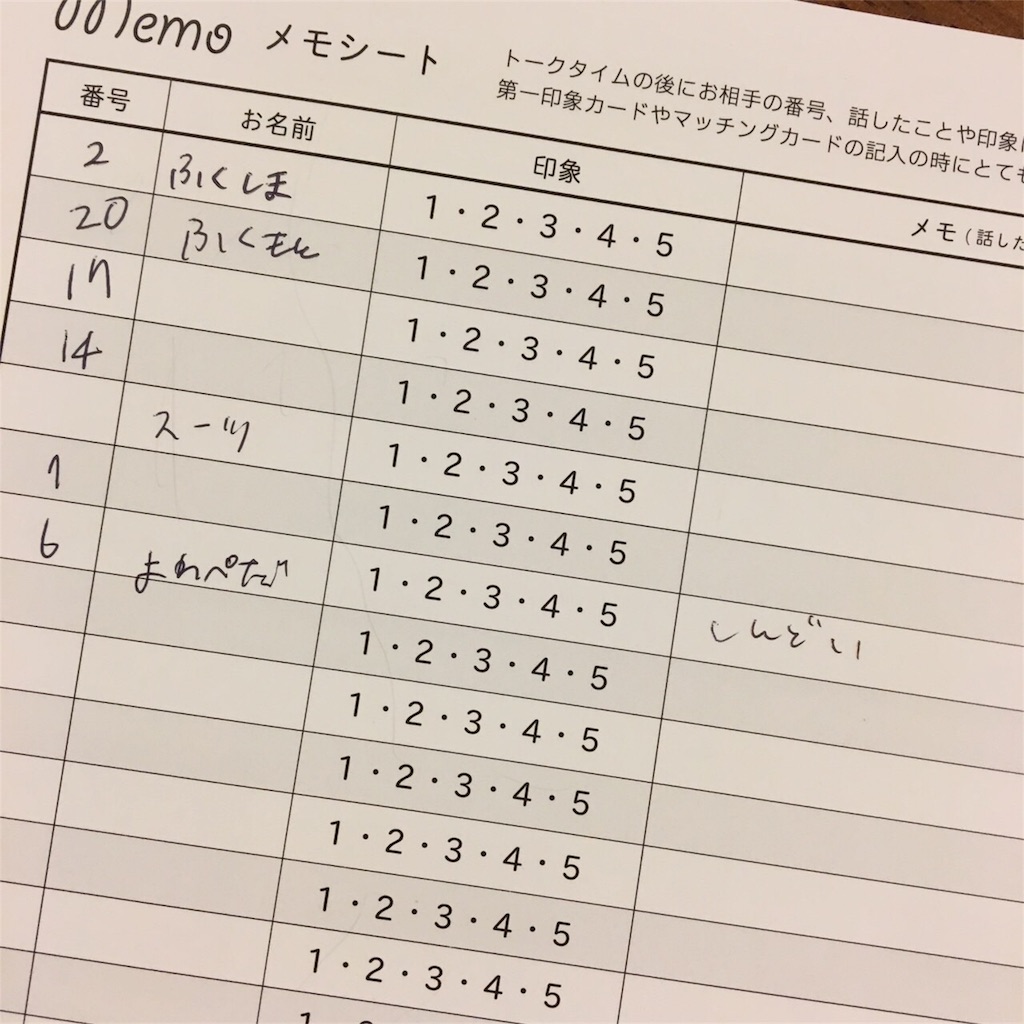 Memo メモシート
トークタイムの後にお相手の番号、話したことや印象
第一印象カードやマッチングカードの記入の時にとても
番号 お名前 印象 メモ（話した
2 ふくしま 1・2・3・4・5
20 ふくもと 1・2・3・4・5
17 1・2・3・4・5
14 1・2・3・4・5
スーツ 1・2・3・4・5
1 1・2・3・4・5
6 1・2・3・4・5 しんどい
1・2・3・4・5
1・2・3・4・5
1・2・3・4・5
1・2・3・4・5
1・2・3・4・5
1・2・3・4・5